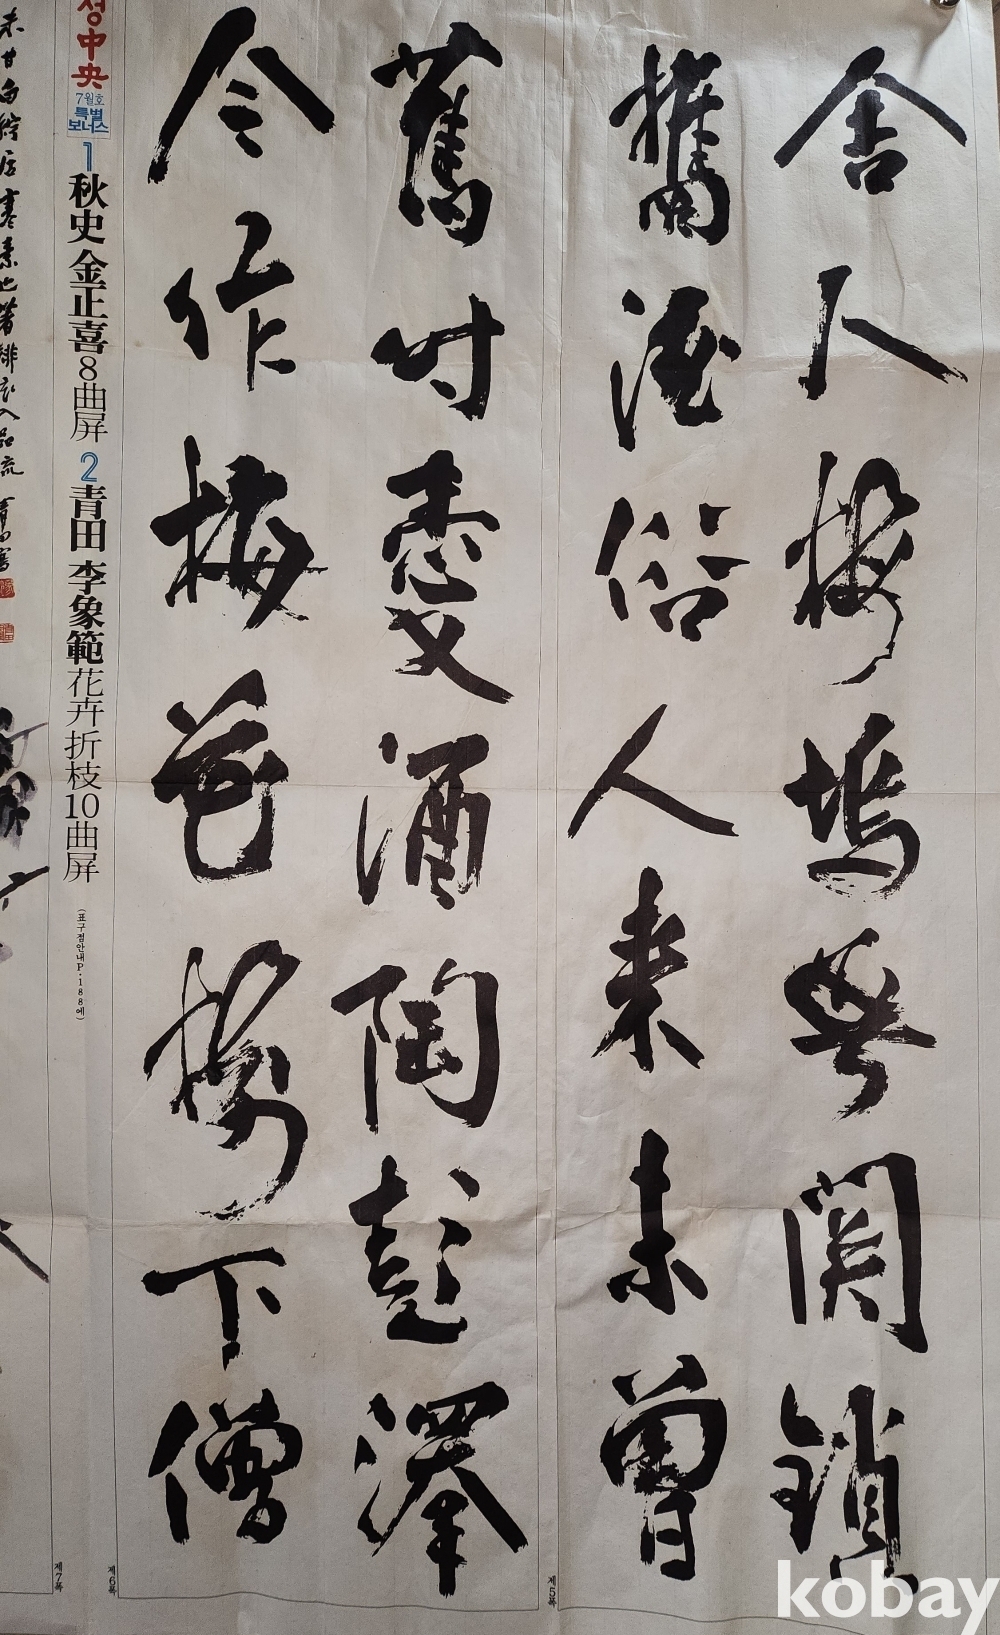 舍人梅塢無關鎖
攜酒俗人來未曾
제5폭
舊時愛酒陶彭澤
今作梅花樹下僧
제6폭
성中央
7월호
특별
보너스
1 秋史 金正喜 8曲屏 2 青田 李象範 花卉 折枝 10曲屏
(표구점안내P·188에)
未甘白紵居寒素也著緋衣入品流
제7폭
kobay